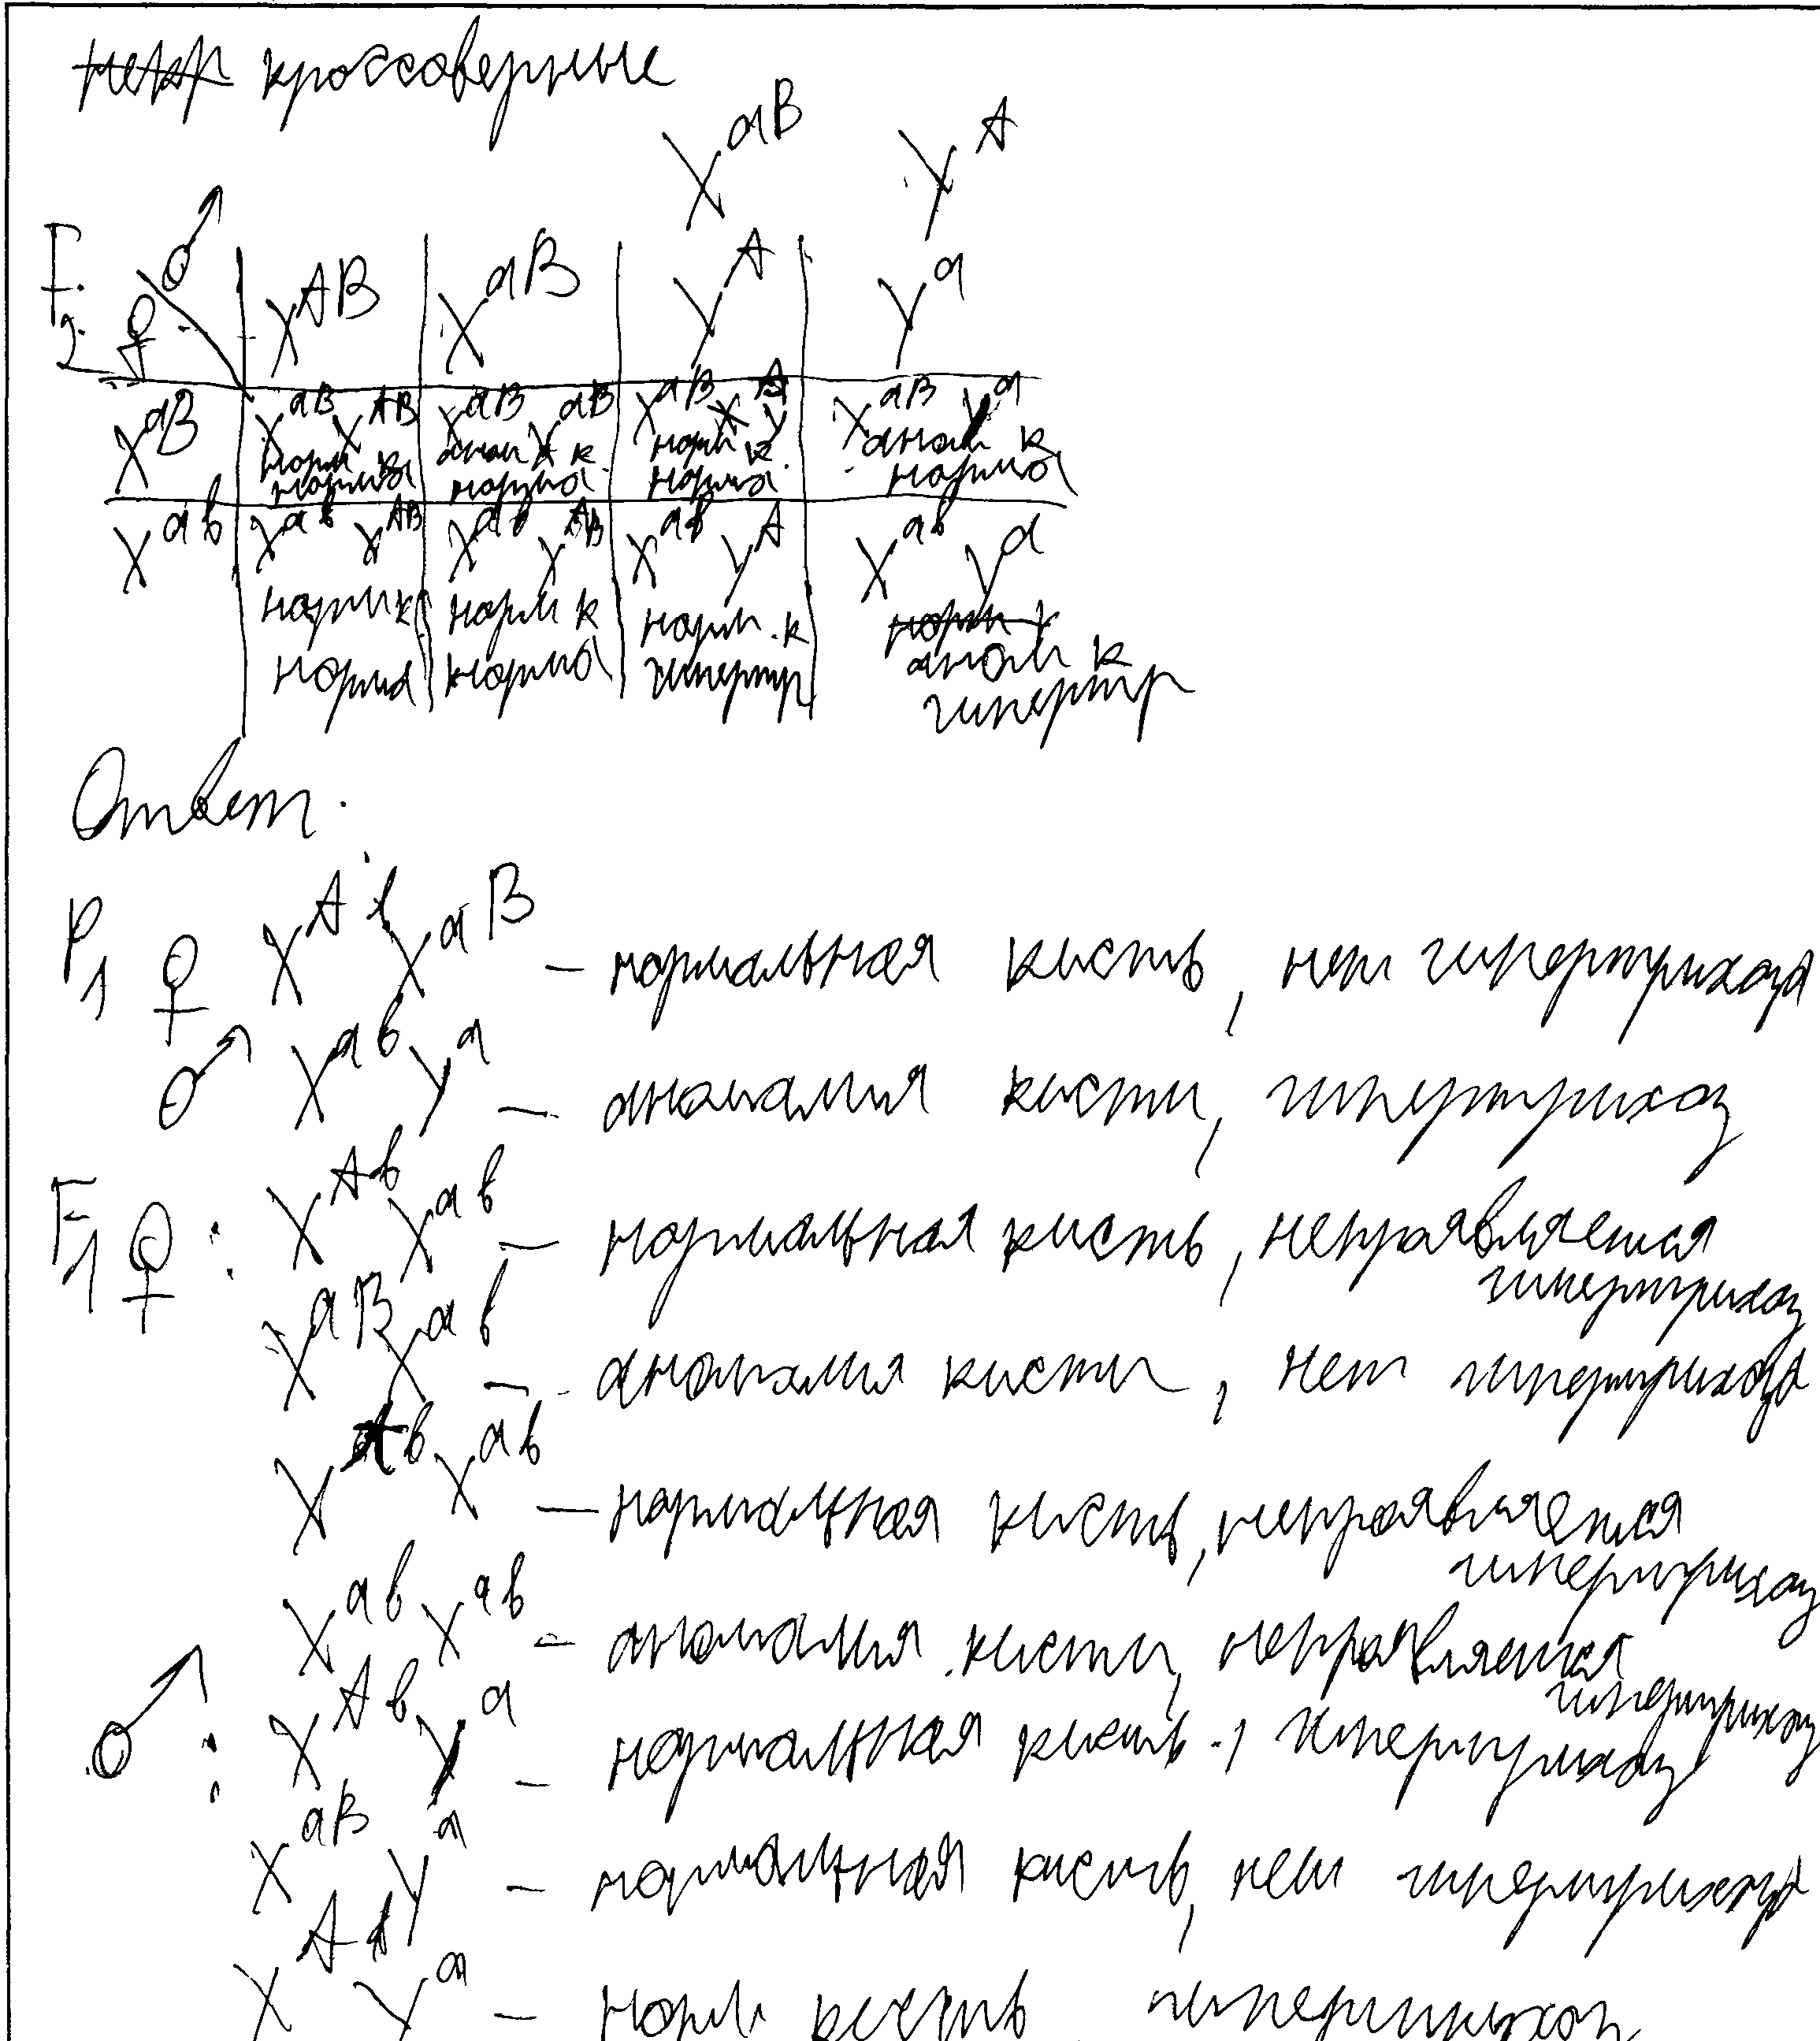 кроссоверные
X^aB Y^A
F2 ♀ ♂ X^AB X^aB Y^A Y^a
X^aB X^aB X^AB X^aB X^aB X^aB Y^A X^aB Y^a
норм к аном к норм к аном к
норма норма норма норма
X^ab X^ab X^AB X^ab X^AB X^ab Y^A X^ab Y^a
норм к норм к норм. к аном к
норма норма гипертр гипертр
Ответ:
P1 ♀ X^Ab X^aB – нормальная кисть, нет гипертрихоза
♂ X^ab Y^a – аномалия кисти, гипертрихоз
F1 ♀: X^Ab X^ab – нормальная кисть, непроявляется гипертрихоз
X^aB X^ab – аномалия кисти, нет гипертрихоза
X^Ab X^ab – нормальная кисть, непроявляется гипертрихоз
X^ab X^ab – аномалия кисти, непроявляется гипертрихоз
♂: X^Ab Y^a – нормальная кисть, гипертрихоз
X^aB Y^a – нормальная кисть, нет гипертрихоза
X^Ab Y^a – норм кисть, гипертрихоз